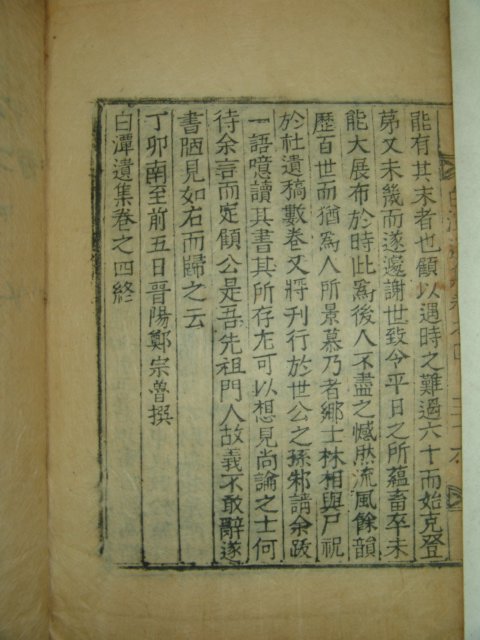 能有其末者也顧以遇時之難過六十而始克登
苐又未幾而遂遽謝世致令平日之所蘊畜卒未
能大展布於時此爲後人不盡之憾然流風餘韻
歷百世而猶爲人所景慕乃者鄕士林相與尸祝
於社遺稿數卷又將刊行於世公之孫請余跋
一語噫讀其書其所存可以想見尚論之士何
待余言而定顧公是吾先祖門人故義不敢辭遂
書陋見如右而歸之云
丁卯南至前五日晉陽鄭宗魯撰
白潭遺集卷之四終